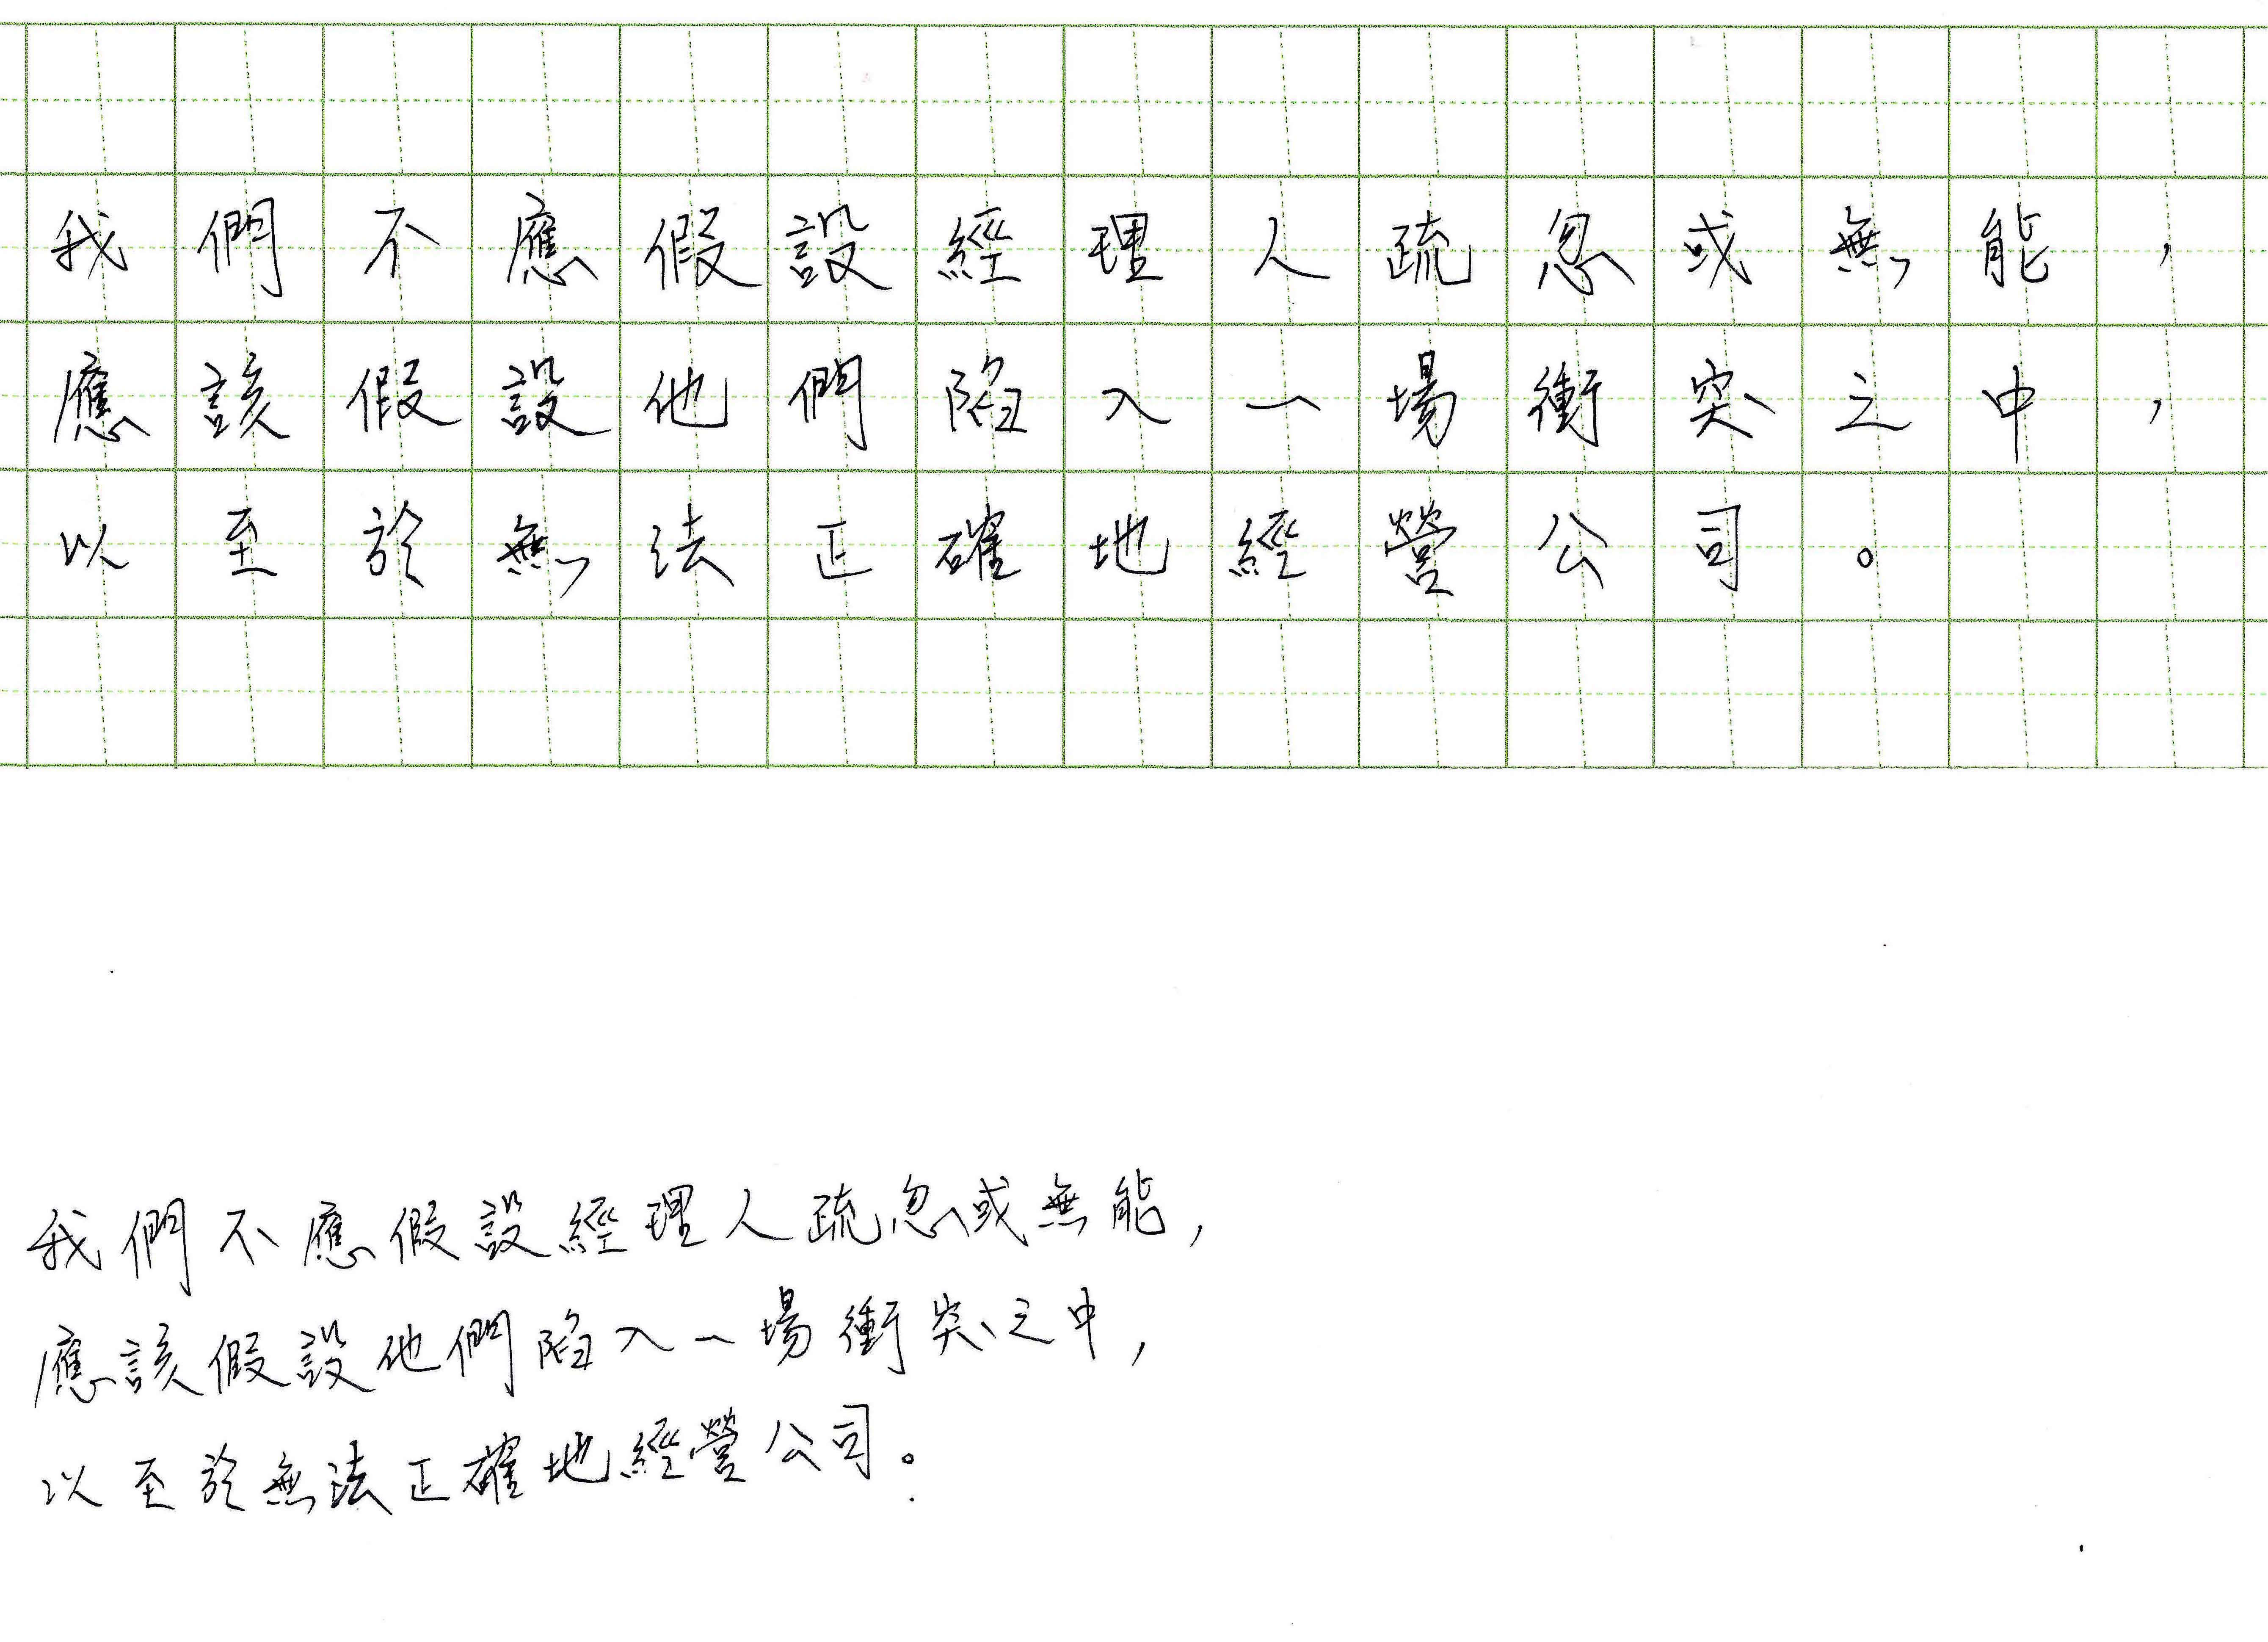 我們不應假設經理人疏忽或無能，
應該假設他們陷入一場衝突之中，
以至於無法正確地經營公司。
我們不應假設經理人疏忽或無能，
應該假設他們陷入一場衝突之中，
以至於無法正確地經營公司。